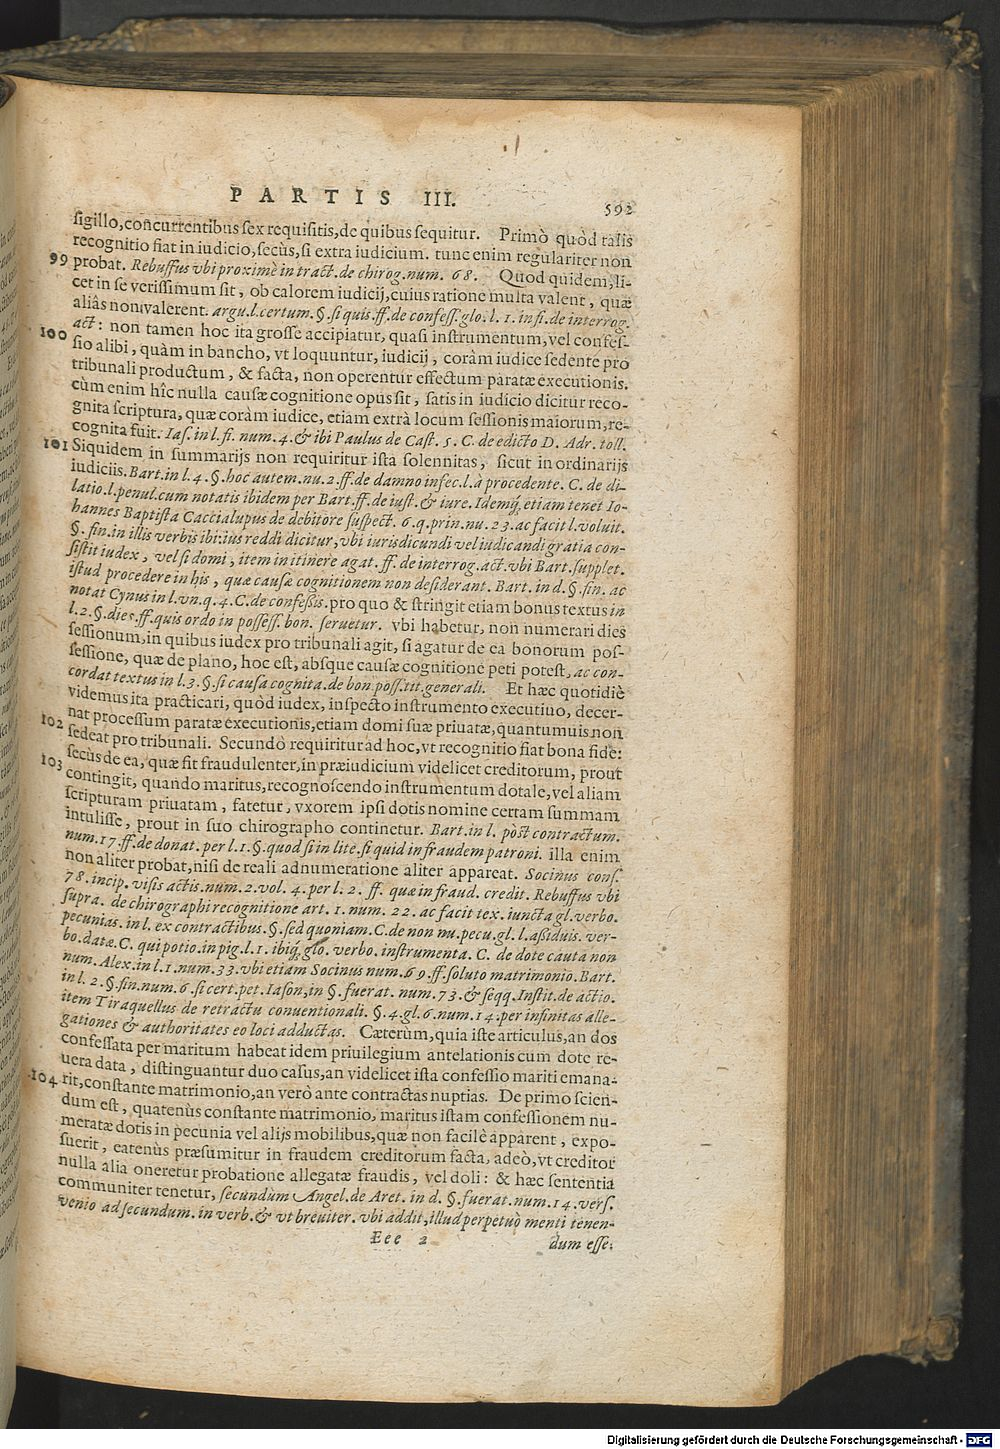 PARTIS III. 592
sigillo, concurrentibus sex requisitis, de quibus sequitur. Primò quòd talis
recognitio fiat in iudicio, secùs, si extra iudicium. tunc enim regulariter non
99 probat. Rebuffus vbi proximè in tract. de chirog. num. 68. Quod quidem, li-
cet in se verissimum sit, ob calorem iudicij, cuius ratione multa valent, quæ
aliâs non valerent. argu. l. certum. §. si quis. ff. de confess. glo. l. 1. in fi. de interrog.
100 act: non tamen hoc ita grosse accipiatur, quasi instrumentum, vel confes-
sio alibi, quàm in bancho, vt loquuntur, iudicij, coràm iudice sedente pro
tribunali productum, & facta, non operentur effectum paratæ executionis.
cùm enim hîc nulla causæ cognitione opus sit, satis in iudicio dicitur reco-
gnita scriptura, quæ coràm iudice, etiam extrà locum sessionis maiorum, re-
cognita fuit. Ias. in l. fi. num. 4. & ibi Paulus de Cast. 5. C. de edicto D. Adr. toll.
101 Siquidem in summarijs non requiritur ista solennitas, sicut in ordinarijs
iudiciis. Bart. in l. 4. §. hoc autem. nu. 2. ff. de damno infec. l. à procedente. C. de di-
latio. l. penul. cum notatis ibidem per Bart. ff. de iust. & iure. Idemq́, etiam tenet Io-
hannes Baptista Caccialupus de debitore suspect. 6. q. prin. nu. 23. ac facit l. voluit.
§. fin. in illis verbis ibi: ius reddi dicitur, vbi iurisdicundi vel iudicandi gratia con-
sistit iudex, vel si domi, item in itinere agat. ff. de interrog. act. vbi Bart. supplet.
istud procedere in his, quæ causæ cognitionem non desiderant. Bart. in d. §. fin. ac
notat Cynus in l. vn. q. 4. C. de confeßis. pro quo & stringit etiam bonus textus in
l. 2. §. dies. ff. quis ordo in possess. bon. seruetur. vbi habetur, non numerari dies
sessionum, in quibus iudex pro tribunali agit, si agatur de ea bonorum pos-
sessione, quæ de plano, hoc est, absque causæ cognitione peti potest, ac con-
cordat textus in l. 3. §. si causa cognita. de bon. poss. tit. generali. Et hæc quotidiè
videmus ita practicari, quòd iudex, inspecto instrumento executiuo, decer-
nat processum paratæ executionis, etiam domi suæ priuatæ, quantumuis non
102 sedeat pro tribunali. Secundò requiritur ad hoc, vt recognitio fiat bona fide:
secùs de ea, quæ fit fraudulenter, in præiudicium videlicet creditorum, prout
103 contingit, quando maritus, recognoscendo instrumentum dotale, vel aliam
scripturam priuatam, fatetur, vxorem ipsi dotis nomine certam summam
intulisse, prout in suo chirographo continetur. Bart. in l. pòst contractum.
num. 17. ff. de donat. per l. 1. §. quod si in lite. si quid in fraudem patroni. illa enim
non aliter probat, nisi de reali adnumeratione aliter appareat. Socinus cons.
78. incip. visis actis. num. 2. vol. 4. per l. 2. ff. quæ in fraud. credit. Rebuffus vbi
supra. de chirographi recognitione art. 1. num. 22. ac facit tex. iuncta gl. verbo.
pecunias. in l. ex contractibus. §. sed quoniam. C. de non nu. pecu. gl. l. aßiduis. ver-
bo. datæ. C. qui potio. in pig. l. 1. ibiq́, glo. verbo. instrumenta. C. de dote cauta non
num. Alex. in l. 1. num. 33. vbi etiam Socinus num. 69. ff. soluto matrimonio. Bart.
in l. 2. §. fin. num. 6. si cert. pet. Iason, in §. fuerat. num. 73. & seqq. Instit. de actio.
item Tiraquellus de retractu conuentionali. §. 4. gl. 6. num. 14. per infinitas alle-
gationes & authoritates eo loci adductas. Cæterùm, quia iste articulus, an dos
confessata per maritum habeat idem priuilegium antelationis cum dote re-
uera data, distinguantur duo casus, an videlicet ista confessio mariti emana-
104 rit, constante matrimonio, an verò ante contractas nuptias. De primo scien-
dum est, quatenùs constante matrimonio, maritus istam confessionem nu-
meratæ dotis in pecunia vel alijs mobilibus, quæ non facilè apparent, expo-
suerit, eatenùs præsumitur in fraudem creditorum facta, adeò, vt creditor
nulla alia oneretur probatione allegatæ fraudis, vel doli: & hæc sententia
communiter tenetur, secundùm Angel. de Aret. in d. §. fuerat. num. 14. vers.
venio ad secundum. in verb. & vt breuiter. vbi addit, illud perpetuò menti tenen-
Eee 2 dum esse,
Digitalisierung gefördert durch die Deutsche Forschungsgemeinschaft - DFG